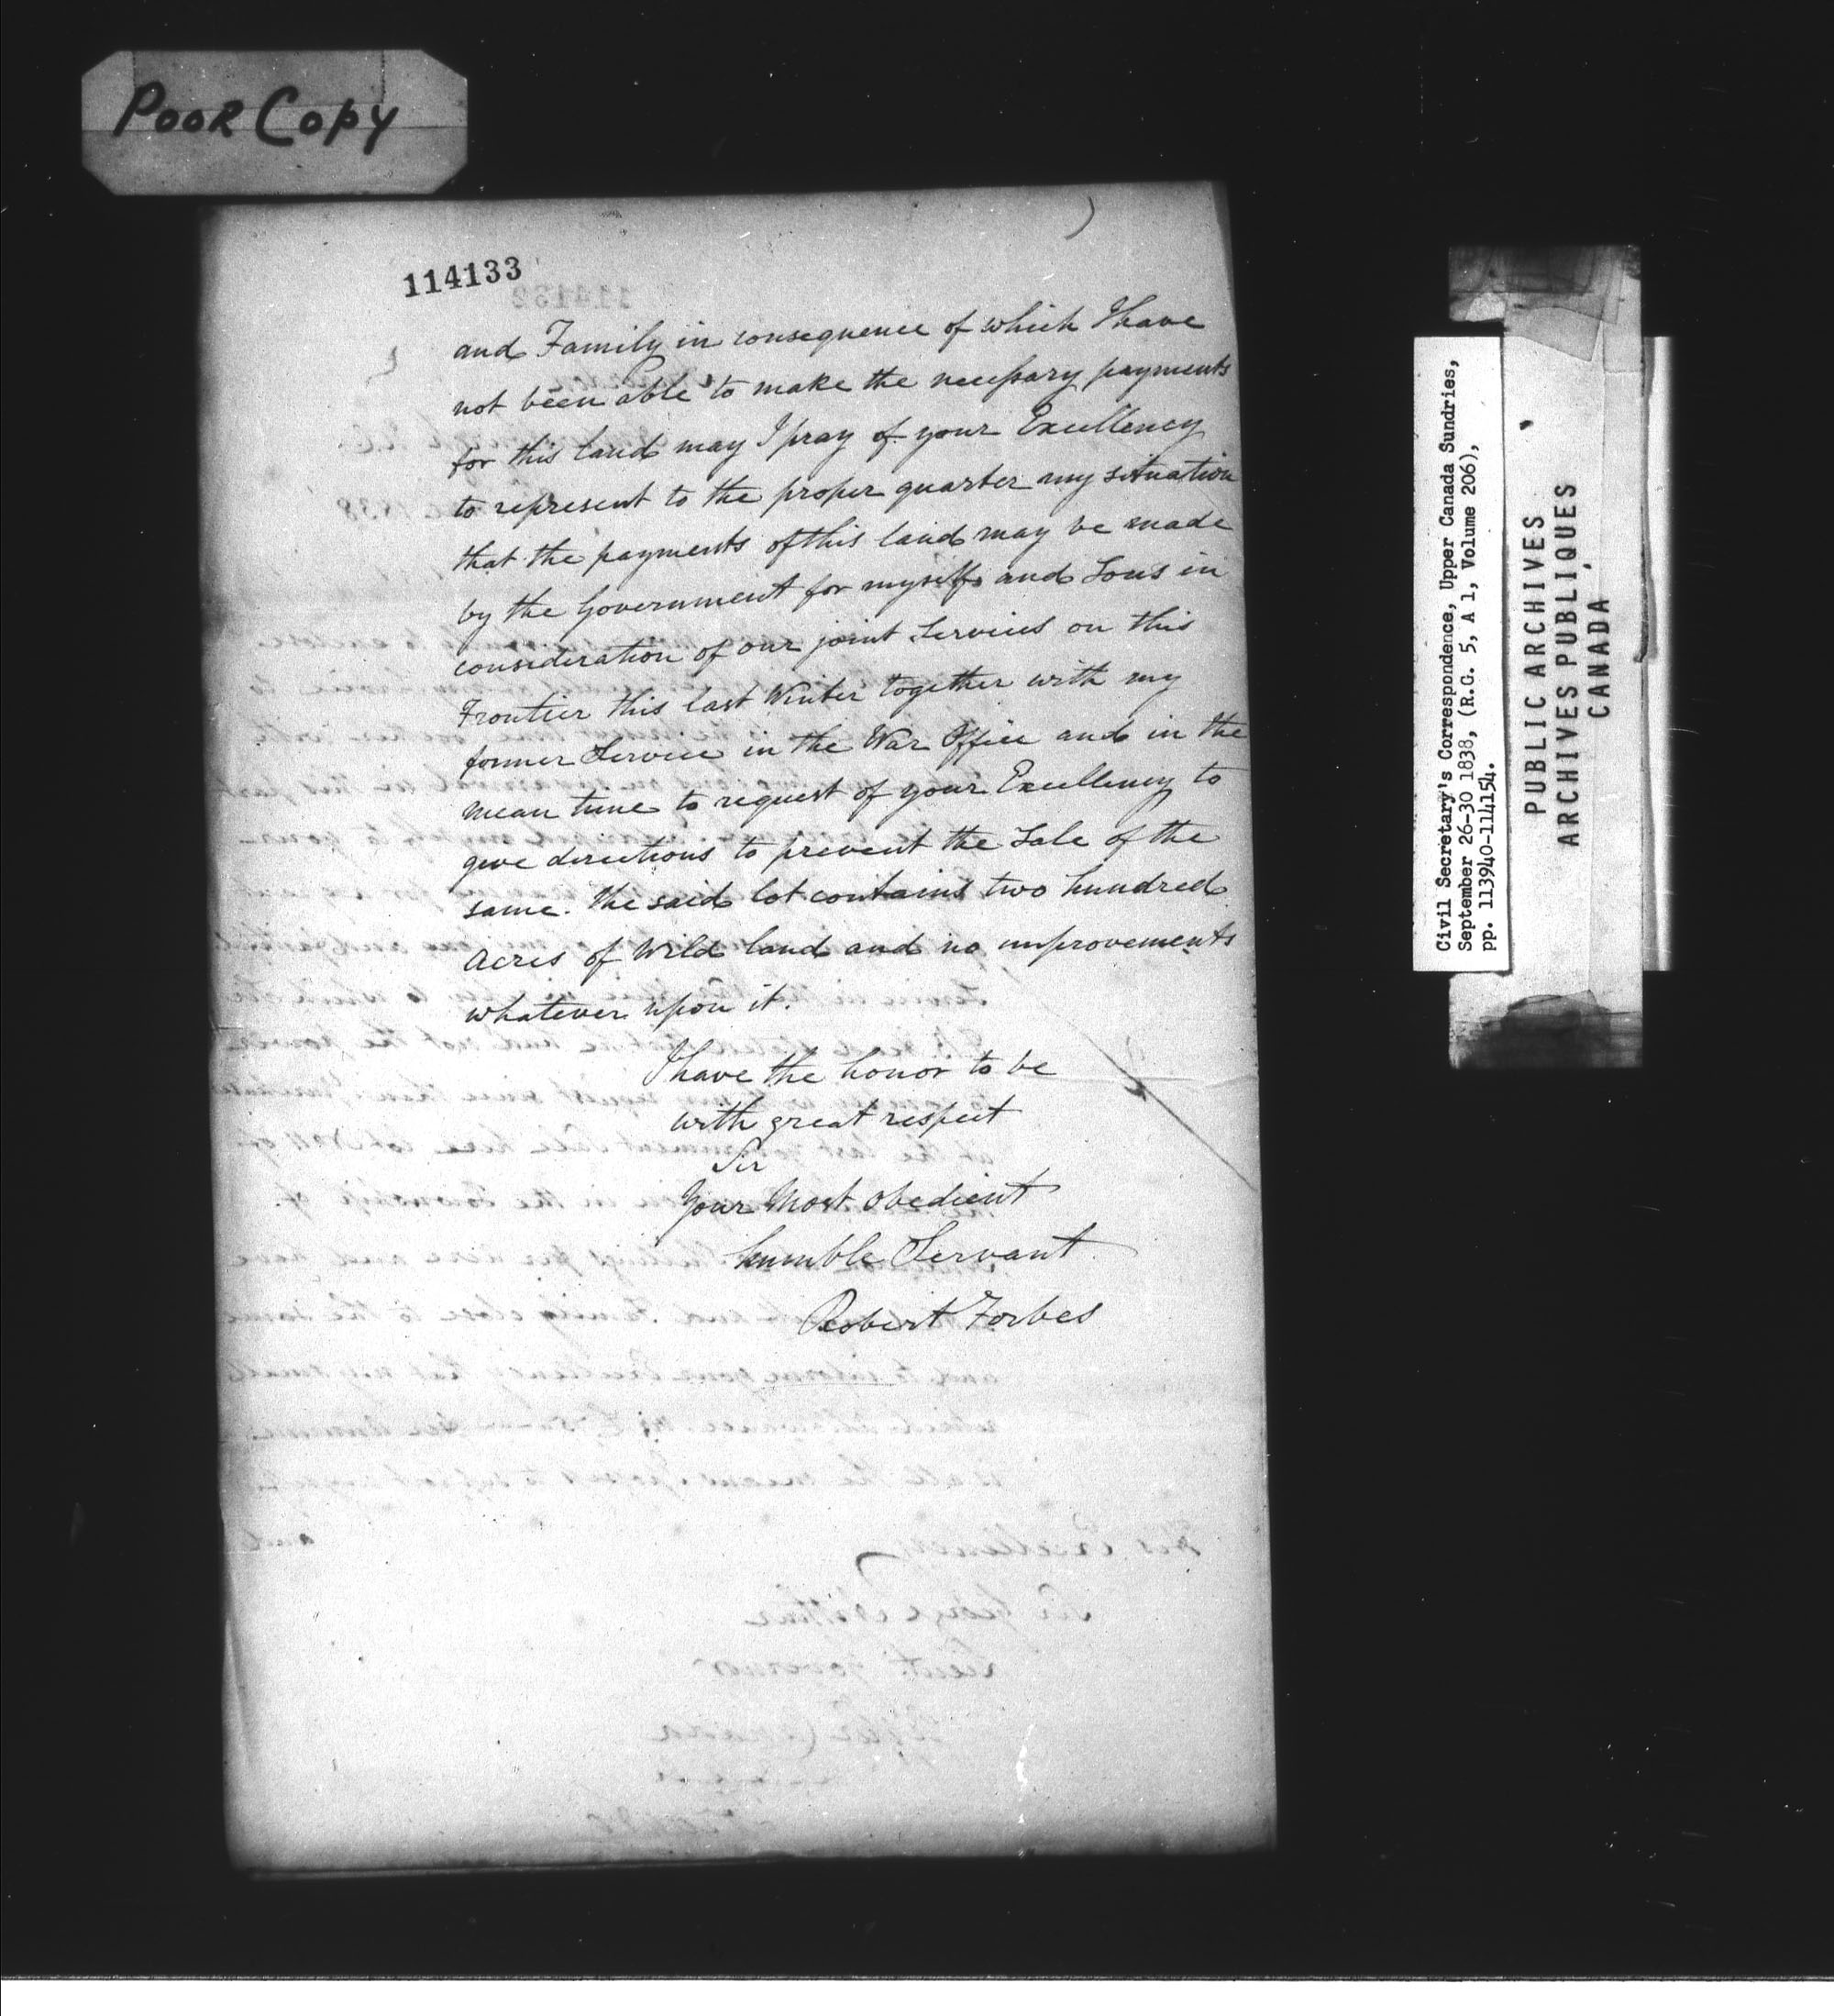 Poor Copy
114133
and Family in consequence of which I have
not been able to make the necessary payments
for this land may I pray of your Excellency
to represent to the proper quarter my situation
that the payments of this land may be made
by the Government for myself and Sons in
consideration of our joint Services on this
Frontier this last Winter together with my
former Service in the War Office and in the
mean time to request of your Excellency to
give directions to prevent the Sale of the
same. The said lot contains two hundred
Acres of Wild land and no improvements
whatever upon it.
I have the honor to be
with great respect
Sir
Your Most obedient
humble Servant
Robert Forbes
Civil Secretary's Correspondence, Upper Canada Sundries,
September 26-30 1838, (R.G. 5, A 1, Volume 206),
pp. 113940-114154.
PUBLIC ARCHIVES
ARCHIVES PUBLIQUES
CANADA